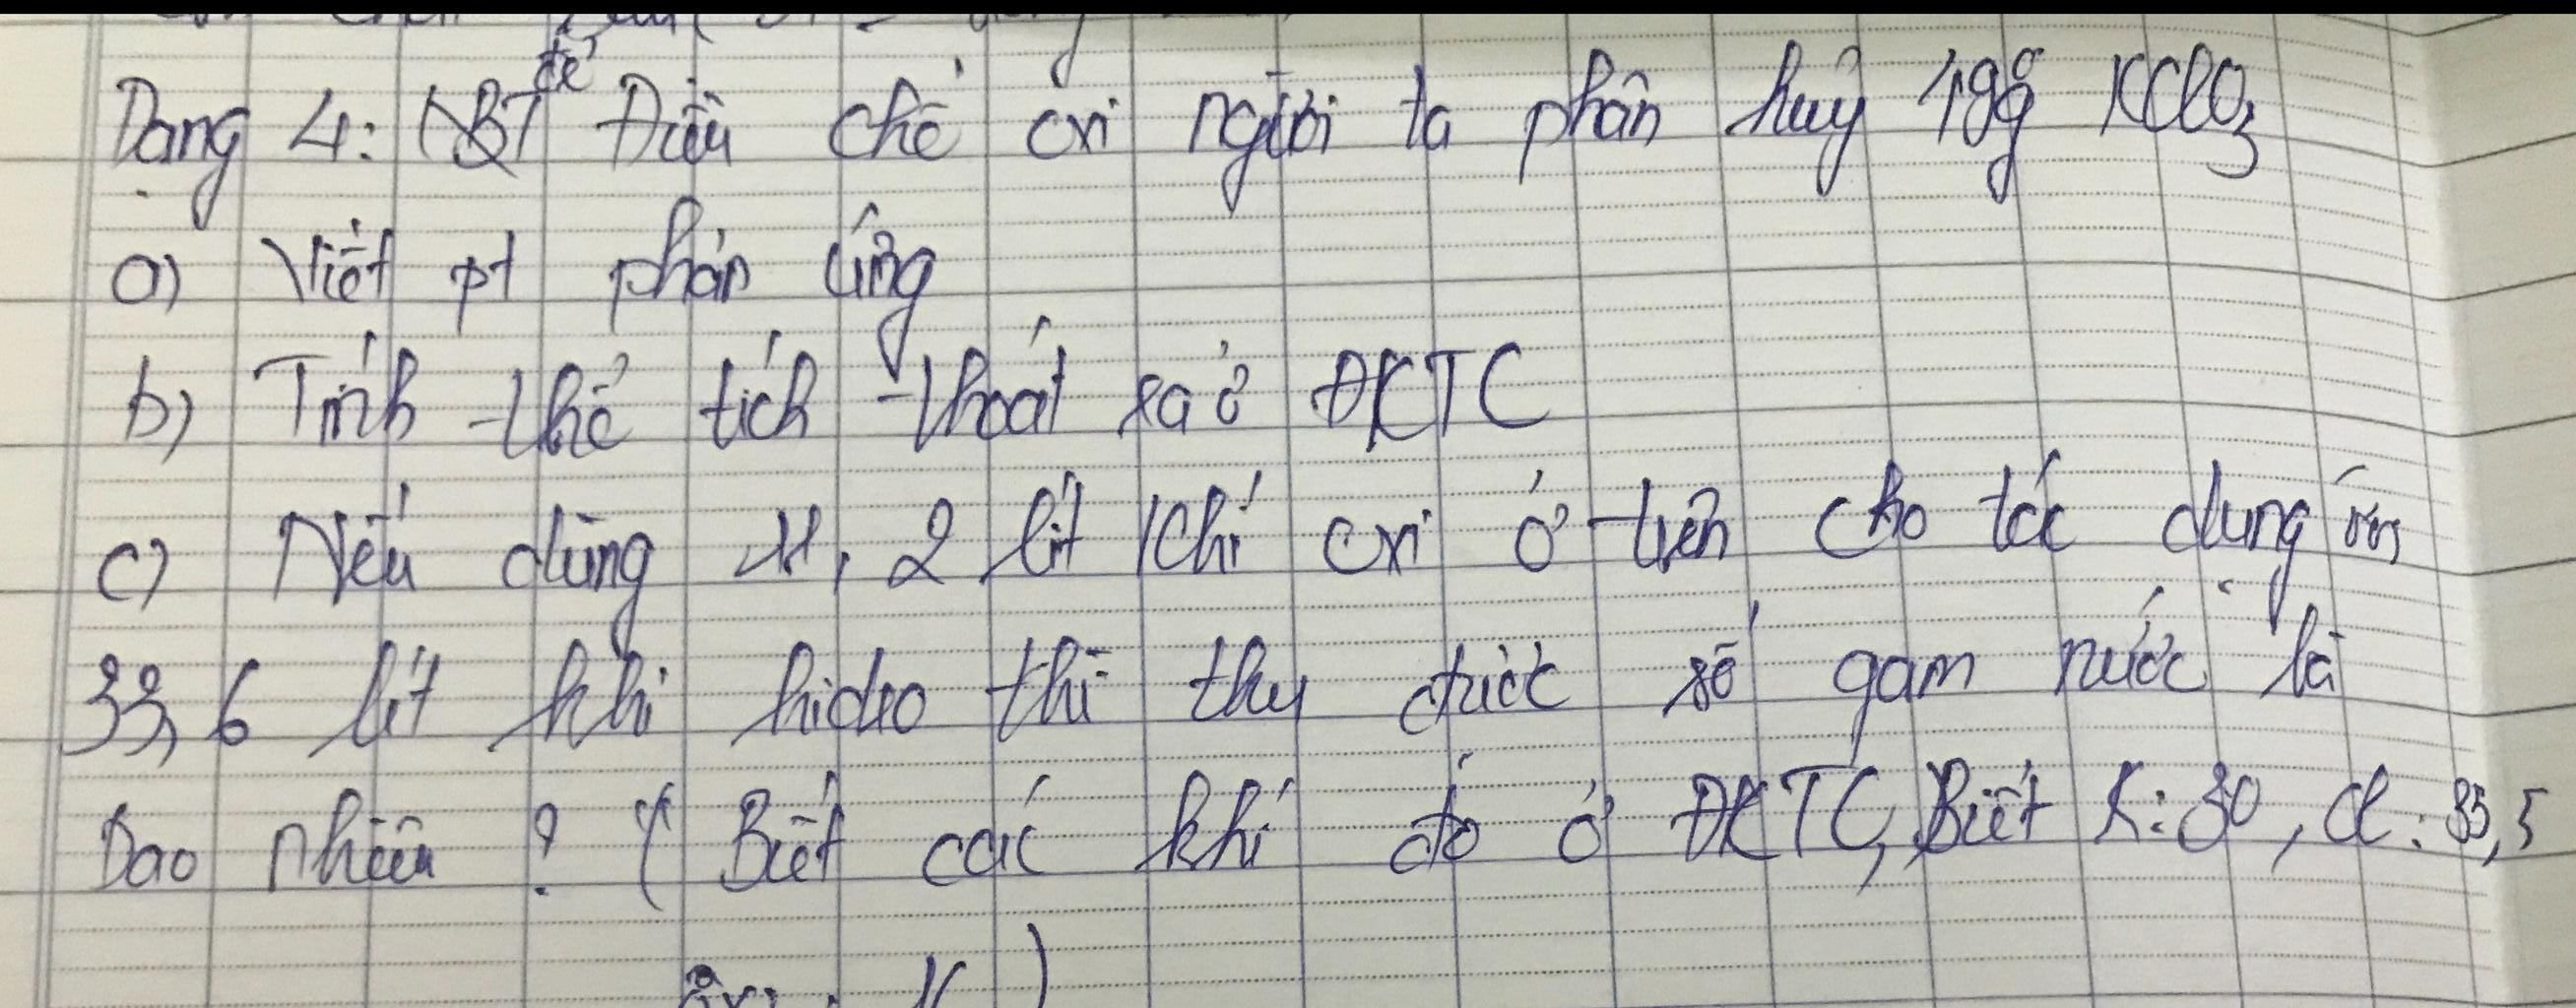 Dạng 4: (BT để Điều chế oxi người ta phân huỷ 49g KClO3
a) Viết pt phản ứng
b) Tính thể tích thoát ra ở ĐKTC
c) Nếu dùng 11,2 lít khí oxi ở trên cho tác dụng với
33,6 lít khí hidro thì thu được số gam nước là
Bao nhiêu? ( Biết các khí đo ở ĐKTC, Biết K: 30, Cl: 35,5